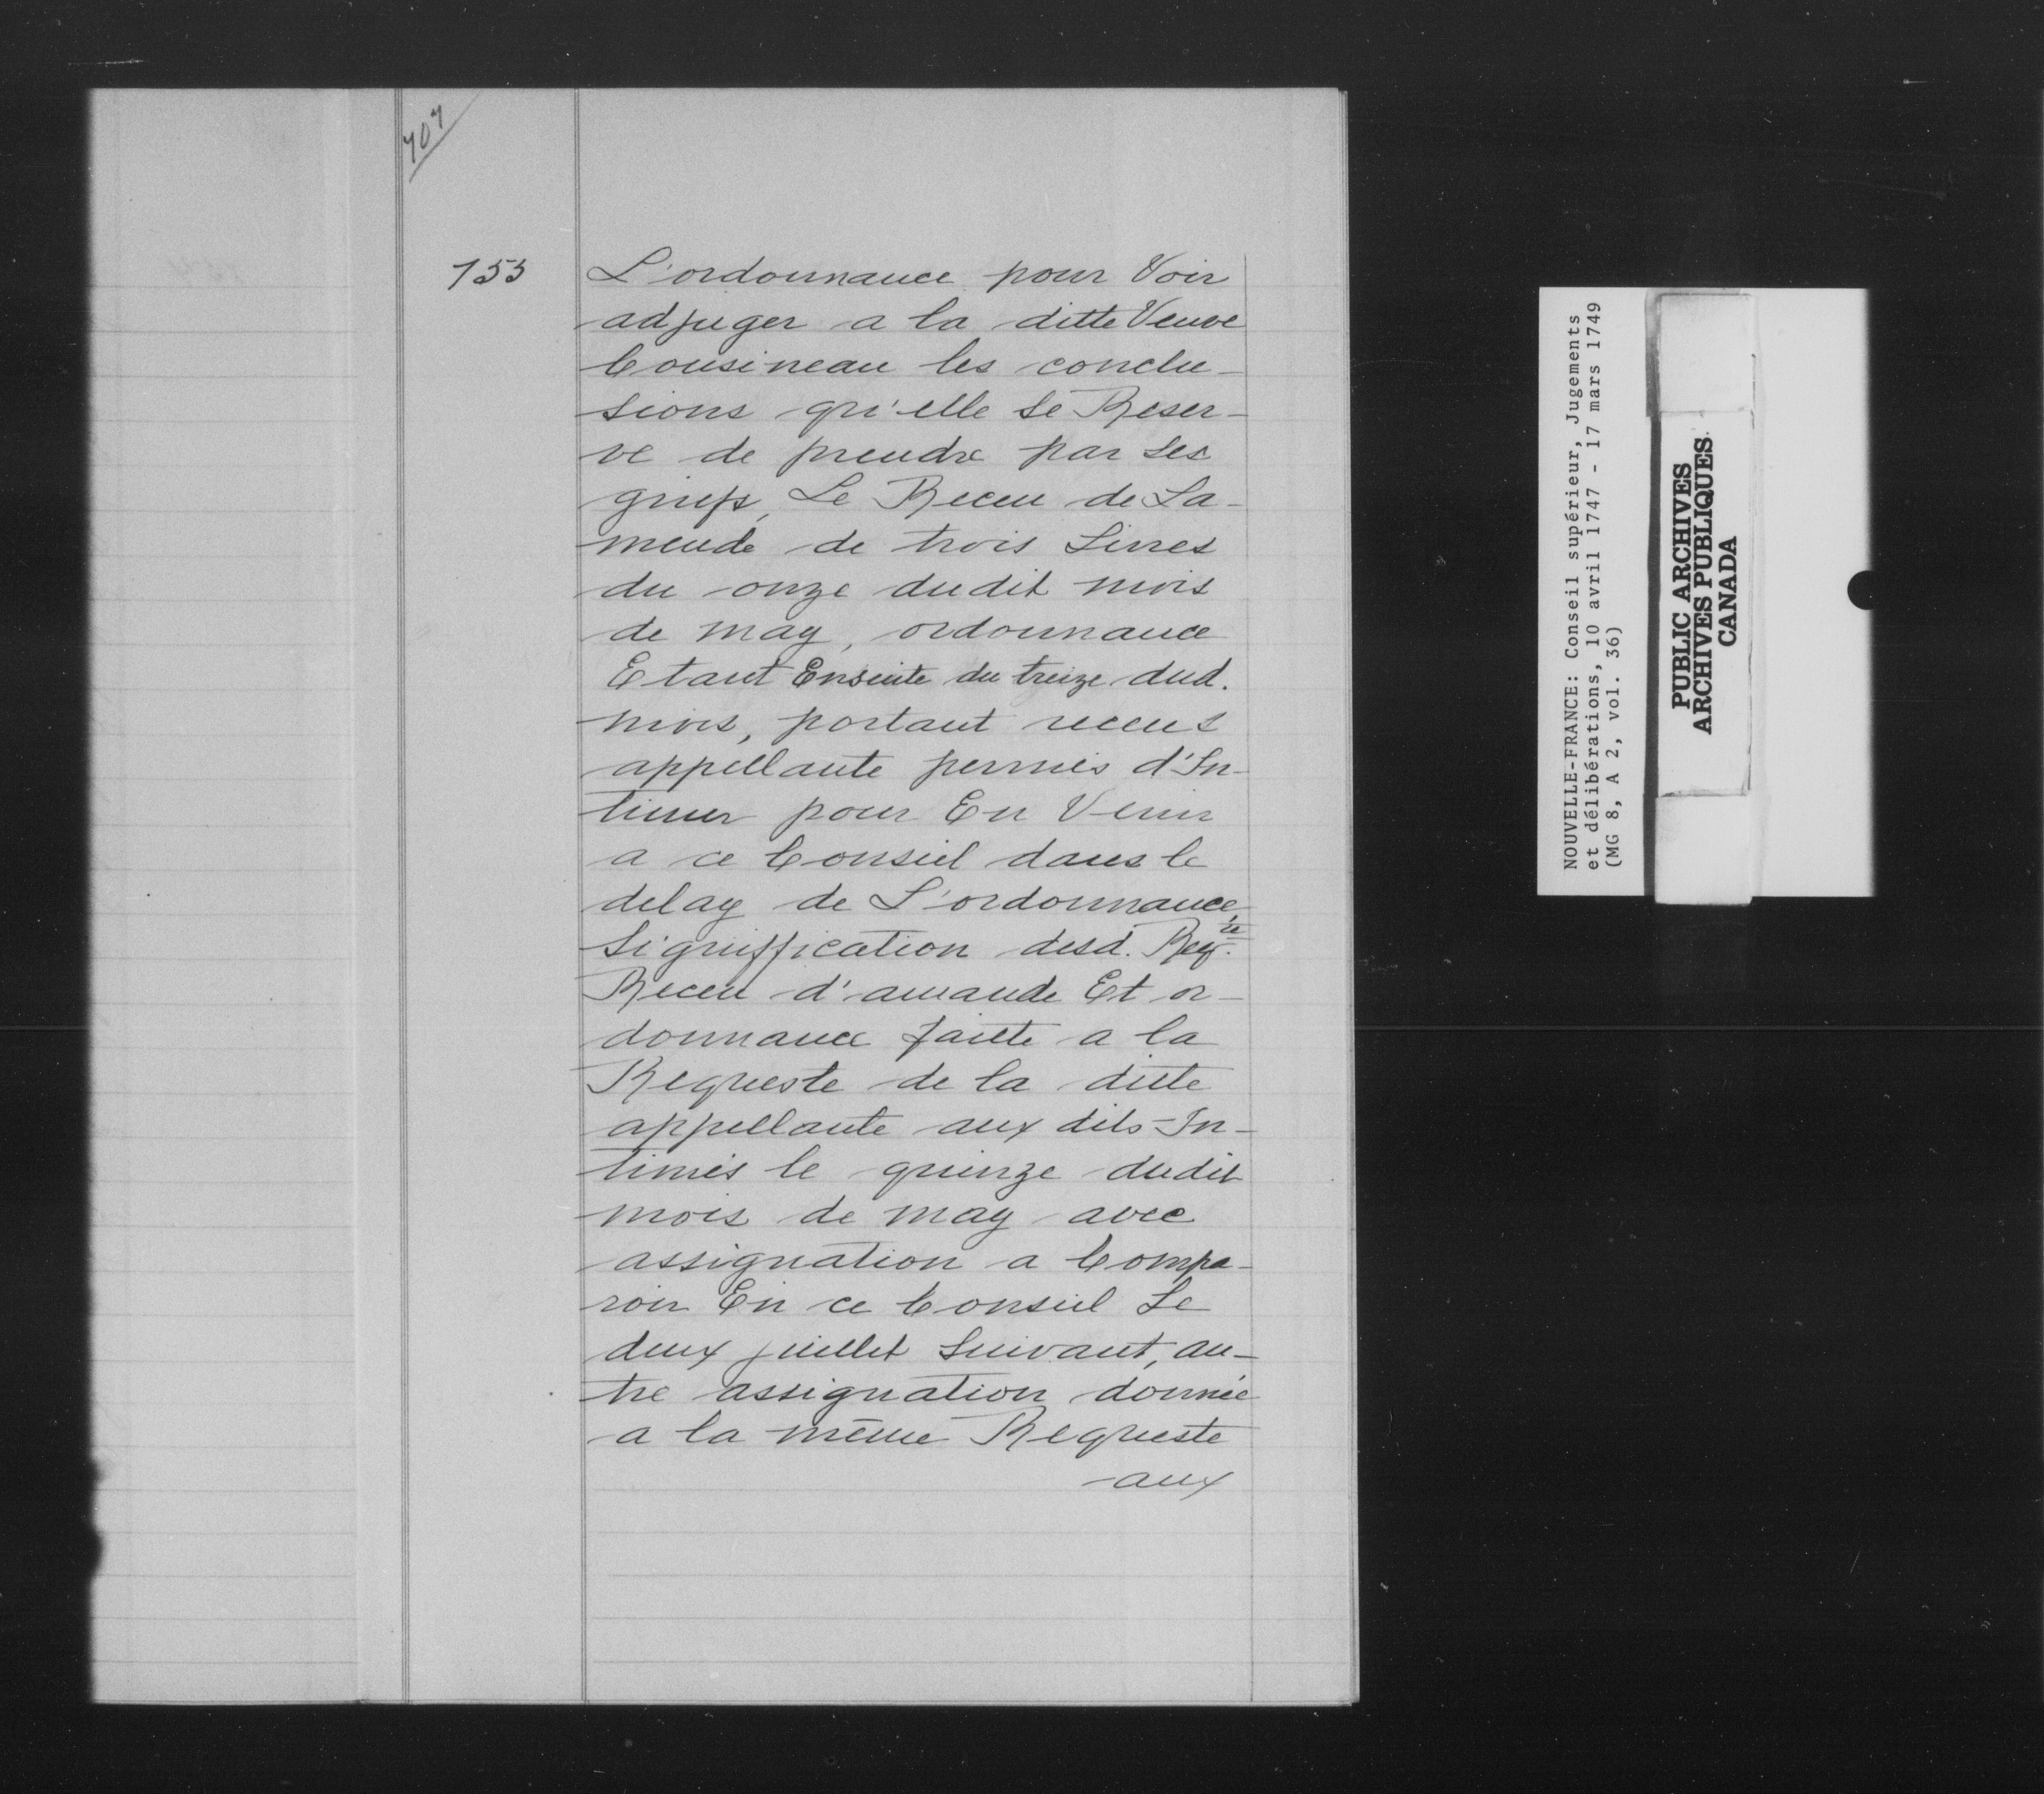 707
153
L'ordonnance pour Voir
adjuger a la ditte Veuve
Cousineau les conclu-
sions qu'elle se Reser-
ve de prendre par ses
griefs, Le Receu de La-
mende de trois Livres
du onze dudit mois
de may, ordonnance
Etant Ensuite du treize dud.
mois, portant receue
appellante permis d'In-
timer pour En Venir
a ce Conseil dans le
delay de L'ordonnance,
Signiffication desd. Reqte.
Receu d'amande Et or-
donnance faitte a la
Requeste de la ditte
appellante aux dits In-
timés le quinze dudit
mois de may avec
assignation a Compa-
roir En ce Conseil Le
deux juillet Suivant, au-
tre assignation donnée
a la même Requeste
aux
NOUVELLE-FRANCE: Conseil supérieur, Jugements
et délibérations, 10 avril 1747 - 17 mars 1749
(MG 8, A 2, vol. 36)
PUBLIC ARCHIVES
ARCHIVES PUBLIQUES
CANADA